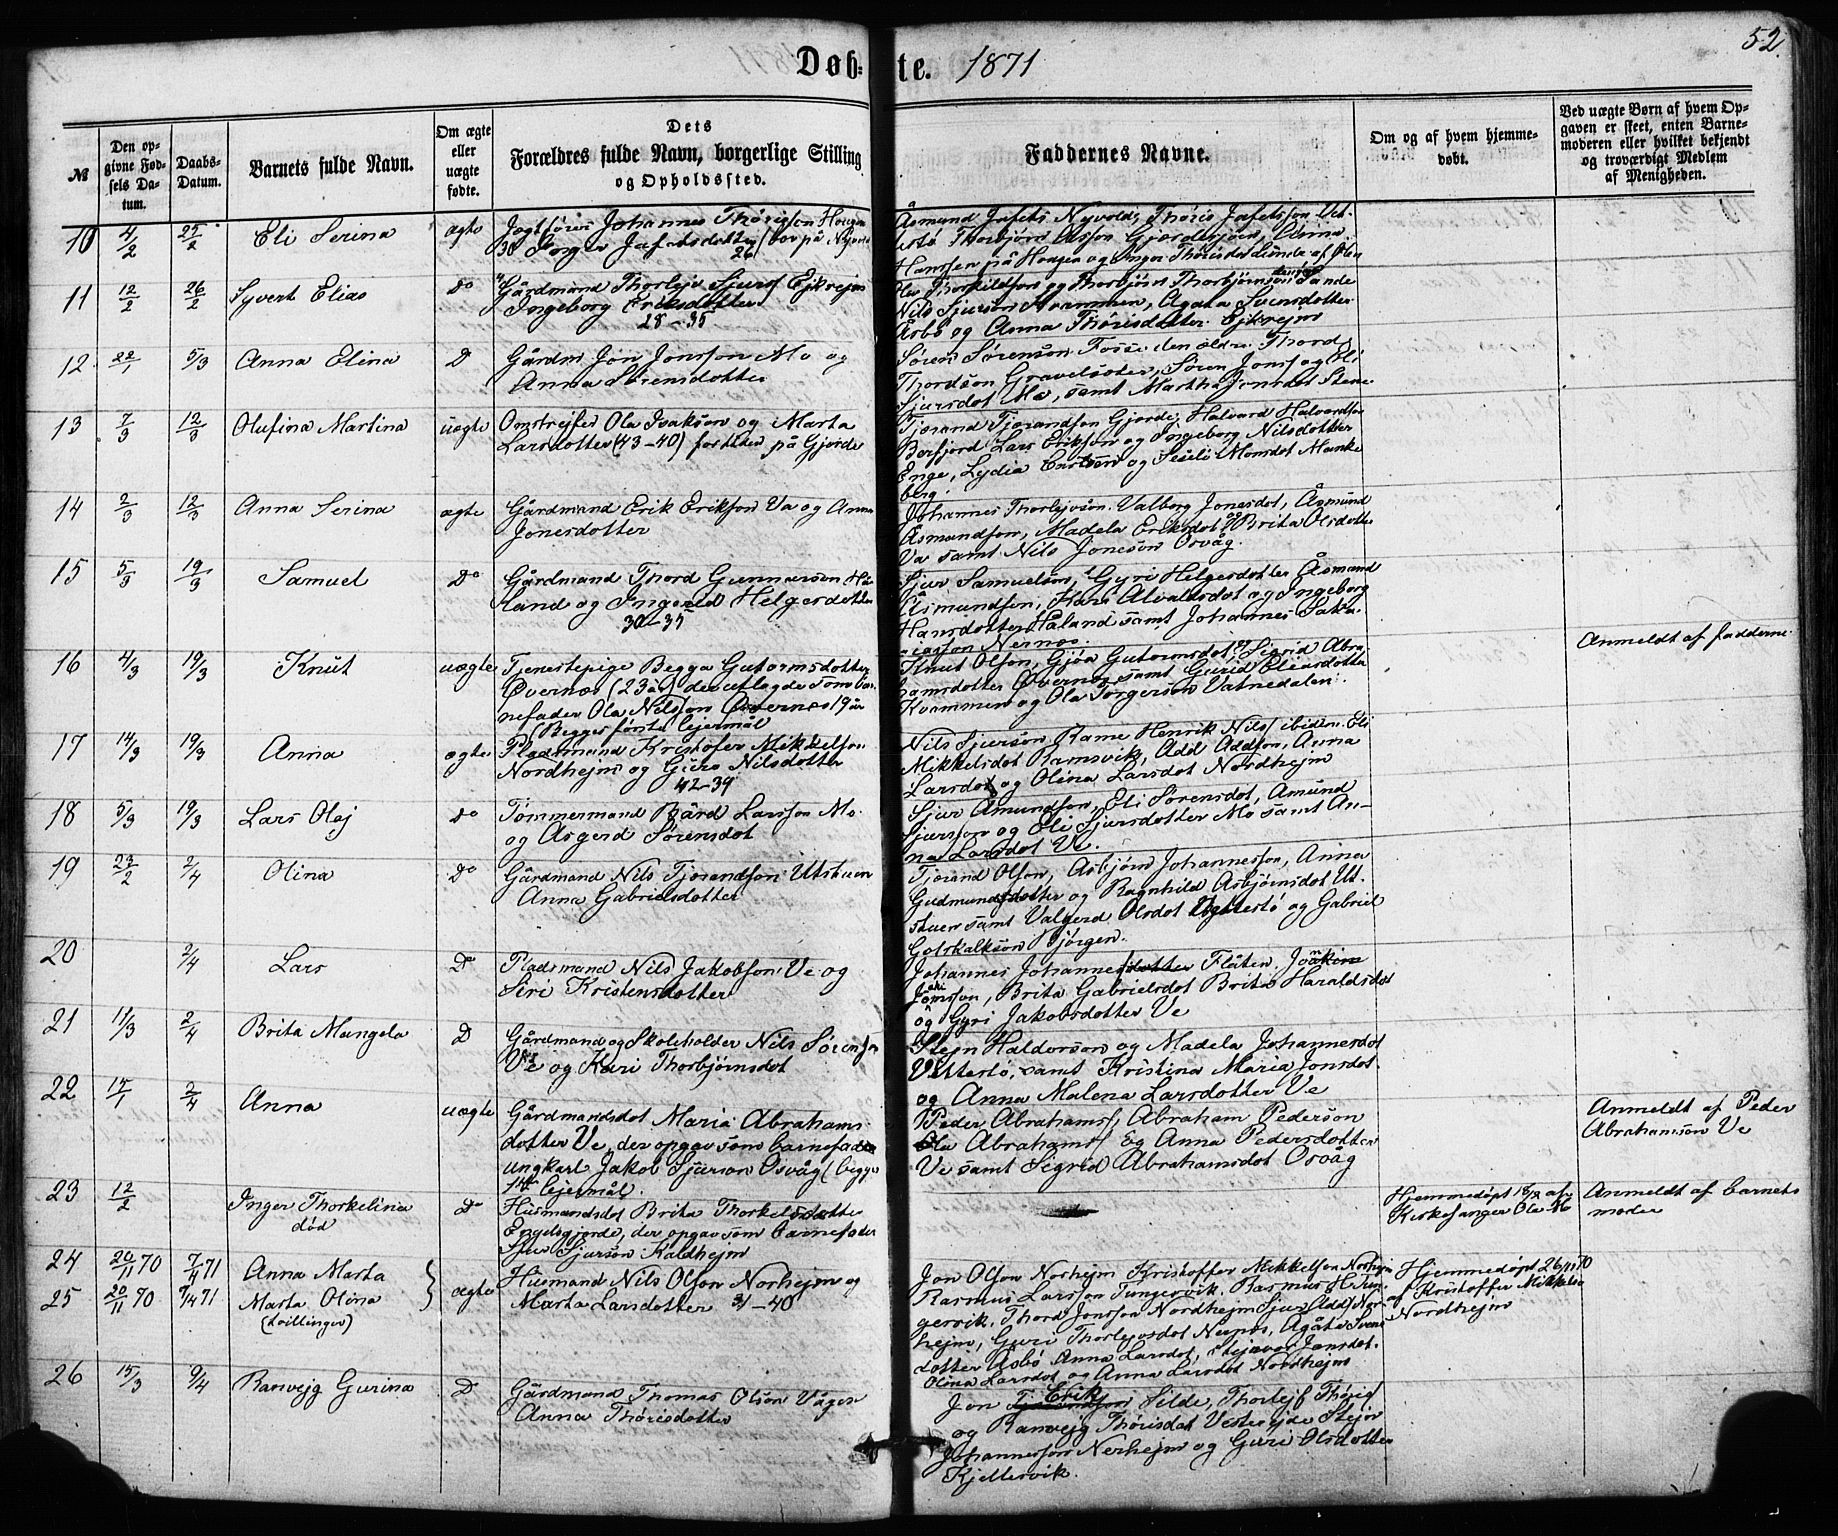 52
Døb-te. 1871
№
Den op-
givne Fød-
sels Da-
tum.
Daabs-
Datum.
Barnets fulde Navn.
Om ægte
eller
uægte
fødte.
Dets
Forældres fulde Navn, borgerlige Stilling
og Opholdssted.
Faddernes Navne.
Om og af hvem hjemme-
døbt.
Ved uægte Børn af hvem Op-
gaven er skeet, enten Barne-
moderen eller hvilket bekjendt
og troværdigt Medlem
af Menigheden.
10 4/2 25/2 Eli Serina ægte
Jogtfører Johannes Thørisson Hougen
38 Inger Jafetsdotter (bor på
26
Åsmund Jafets Nyvold, Thøris Jafetsson Vet-
Thorbjørn Gjerdesjøen, Anna
Hanssen på Hougen og Inger Thørisdot af Ølen
11 12/2 26/2 Syvert Elias Do
Gårdmand Thorlejv Sjurs Ejkrejm
Ingeborg Eriksdotter
28–35
og Thorbjørn Thorbjørnsøn Sande
Nils Sjurson Kvammen, Agata Svensdotter
Åsbø og Anna Thørisdotter Ejkrejm
12 22/1 5/3 Anna Elina D
Gårdm Jon Jonsson Mo og
Anna Sørensdotter
Søren Sørenson Fosse den ældre. Thord
Thordson Gravelsæter, Søren Jonss og Eli
Sjursdot Mo, samt Martha Jonsdot Stene
13 7/3 12/3 Olufina Martina uægte
Omstrejfer Ola Isakson og Marta
Larsdotter (43–40) for tiden på Gjerde
Tjerand Tjerandson Gjerde, Halvard Halvardson
Berfjord Lars Erikson og Ingeborg Nilsdotter
Enge, Lydia og Seseli Monsdot Manke
berg.
14 2/3 12/3 Anna Serina ægte
Gårdmand Erik Erikson Va og Anna
Jonesdotter
Johannes Thorlejvson. Valborg Jonesdot, Åsmund
Åsmundson, Madela Eriksdot og Brita Olsdotter
Va samt Nils Joneson Osvåg.
15 5/3 19/3 Samuel Do
Gårdmand Thord Gunnarson Hå-
land og Ingerid Helgesdotter
30–35
Sjur Samuelson, Gyri Helgesdotter Åsmund
Åsmundson, Hans Alvaldsdot og Ingeborg
Hansdotter Håland samt Johannes Saka-
riasson Nernes.
16 4/3 19/3 Knut uægte
Tjenestepige Begga Gutormsdotter
Øvernes (23 år) der utlagde som bar-
nefader Ola Nilsson Øvernes 19 år
(Begges første lejermål
Knut Olson, Gjøa Gutormsdot og Sigrid Abra-
hamsdotter Øvernes samt Gurid Eliasdotter
Kvammen og Ola Torgerson Vatnedalen.
Anmeldt af fadderne
17 14/3 19/3 Anna ægte
Pladsmand Kristofer Mikkelson
Nordhejm og Guro Nilsdotter
42–39
Nils Sjurson Rame Henrik Nils ibidem. Eli
Mikkelsdot Ramsvik, Add Addson, Anna
Larsdot og Olina Larsdot Nordhejm
18 5/3 19/3 Lars Olej Do
Tømmermand Bård Larsson Mo
og Åsgerd Sørensdot
Sjur Åmundson, Eli Sørensdot, Åmund
Sjursson og Eli Sjursdotter Mo samt An-
na Larsdot Ve.
19 23/2 2/4 Olina Do
Gårdmand Nils Tjerandson Utstuen
Anna Gabrielsdotter
Tjerand Olson, Asbjørn Johannesson, Anna
Gudmundsdotter og Ragnhild Asbjørnsdot Ut-
stuen samt Valgerd Olsdot og Gabriel
Gotskalkson Bjørgen.
20 2/4 Lars Do
Pladsmand Nils Jakobson Ve og
Siri Kristensdotter
Johannes Johannes Flåten. Joakim
Jonsson, Brita Gabrielsdot Brita Haraldsdot
og Gyri Jakobsdotter Ve
21 11/3 2/4 Brita Mangela D
Gårdmand og Skoleholder Nils Sørenson
Ve og Kari Thorbjørnsdot
Stejn Haldorson og Madela Johannesdot
Vettestø, samt Kristina Maria Jonsdot.
og Anna Malena Larsdotter Ve
22 15/1 2/4 Anna uægte
Gårdmandsdot Maria Abrahams-
dotter Ve, der opgav som barnefader
ungkarl Jakob Sjurson Osvåg (begges
1ste lejermål.
Peder Abrahams, Abraham Pederson
Ola Abrahams og Anna Pedersdotter
Ve samt Sigrid Abrahamsdot Osvåg
Anmeldt af Peder
Abrahamson Ve
23 12/2 Inger Thorkelina
død
Do
Husmandsdot Brita Thorkelsdotter
Engelsgjerde, der opgav som barnefader
Sjur Sjurson Kaldhejm
Hjemmedøpt 18/2 af
Kirkesanger Ola Mo
Anmeldt af barnets
moder
24 20/11 70 7/4 71 Anna Marta
25 20/11 70 7/4 71 Marta Olina
(tvillinger)
ægte
Husmand Nils Olson Norhejm og
Marta Larsdotter 31–40
Jon Olson Norhejm Kristoffer Mikkelson Norhejm
Rasmus Larsson Tungesvik. Rasmus H. Tun-
gesvik. Thord Jonsson Nordhejm Sjur Adds Nor-
hejm, Guri Thorlejvsdot Nernes, Ågåta Svens
dotter Åsbø Anna Larsdot, Jonsdot.
Olina Larsdot og Anna Larsdot Nordhejm
Hjemmedøpt 26/11 70
af Kristoffer Mikkelson
Nordhejm
26 15/3 9/4 Ranvejg Gurina D
Gårdmand Thomas Olson Vågen
Anna Thørisdotter
Jon Erik Silde, Thorlejf Thøris
og Ranvejg Thørisdot Stejn
Johannesson Nerhejm og Guri Olsdotter
Kjettesvik.